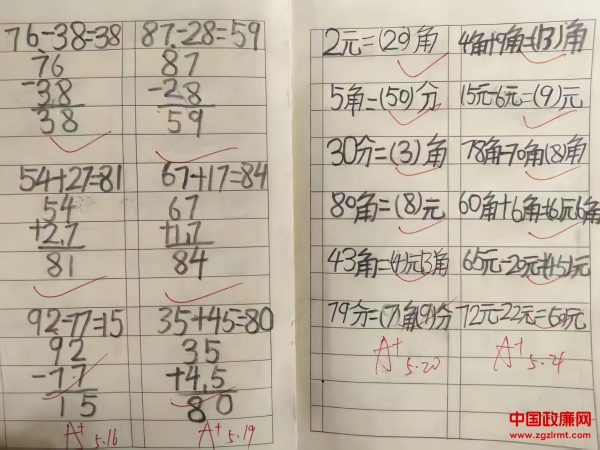 76-38=38
76
-38
38
54+27=81
54
+27
81
92-77=15
92
-77
15
A+ 5.16
87-28=59
87
-28
59
67+17=84
67
+17
84
35+45=80
35
+45
80
A+ 5.19
2元=(20)角
5角=(50)分
30分=(3)角
80角=(8)元
43角=(4)元(3)角
79分=(7)角(9)分
A+ 5.20
4角+9角=(13)角
15元-6元=(9)元
78角-70角=(8)角
60角+6角=(6)元(6)角
65元-20元=(45)元
72元-22元=(50)元
A+ 5.21
中国政廉网
www.zgzlrmt.com